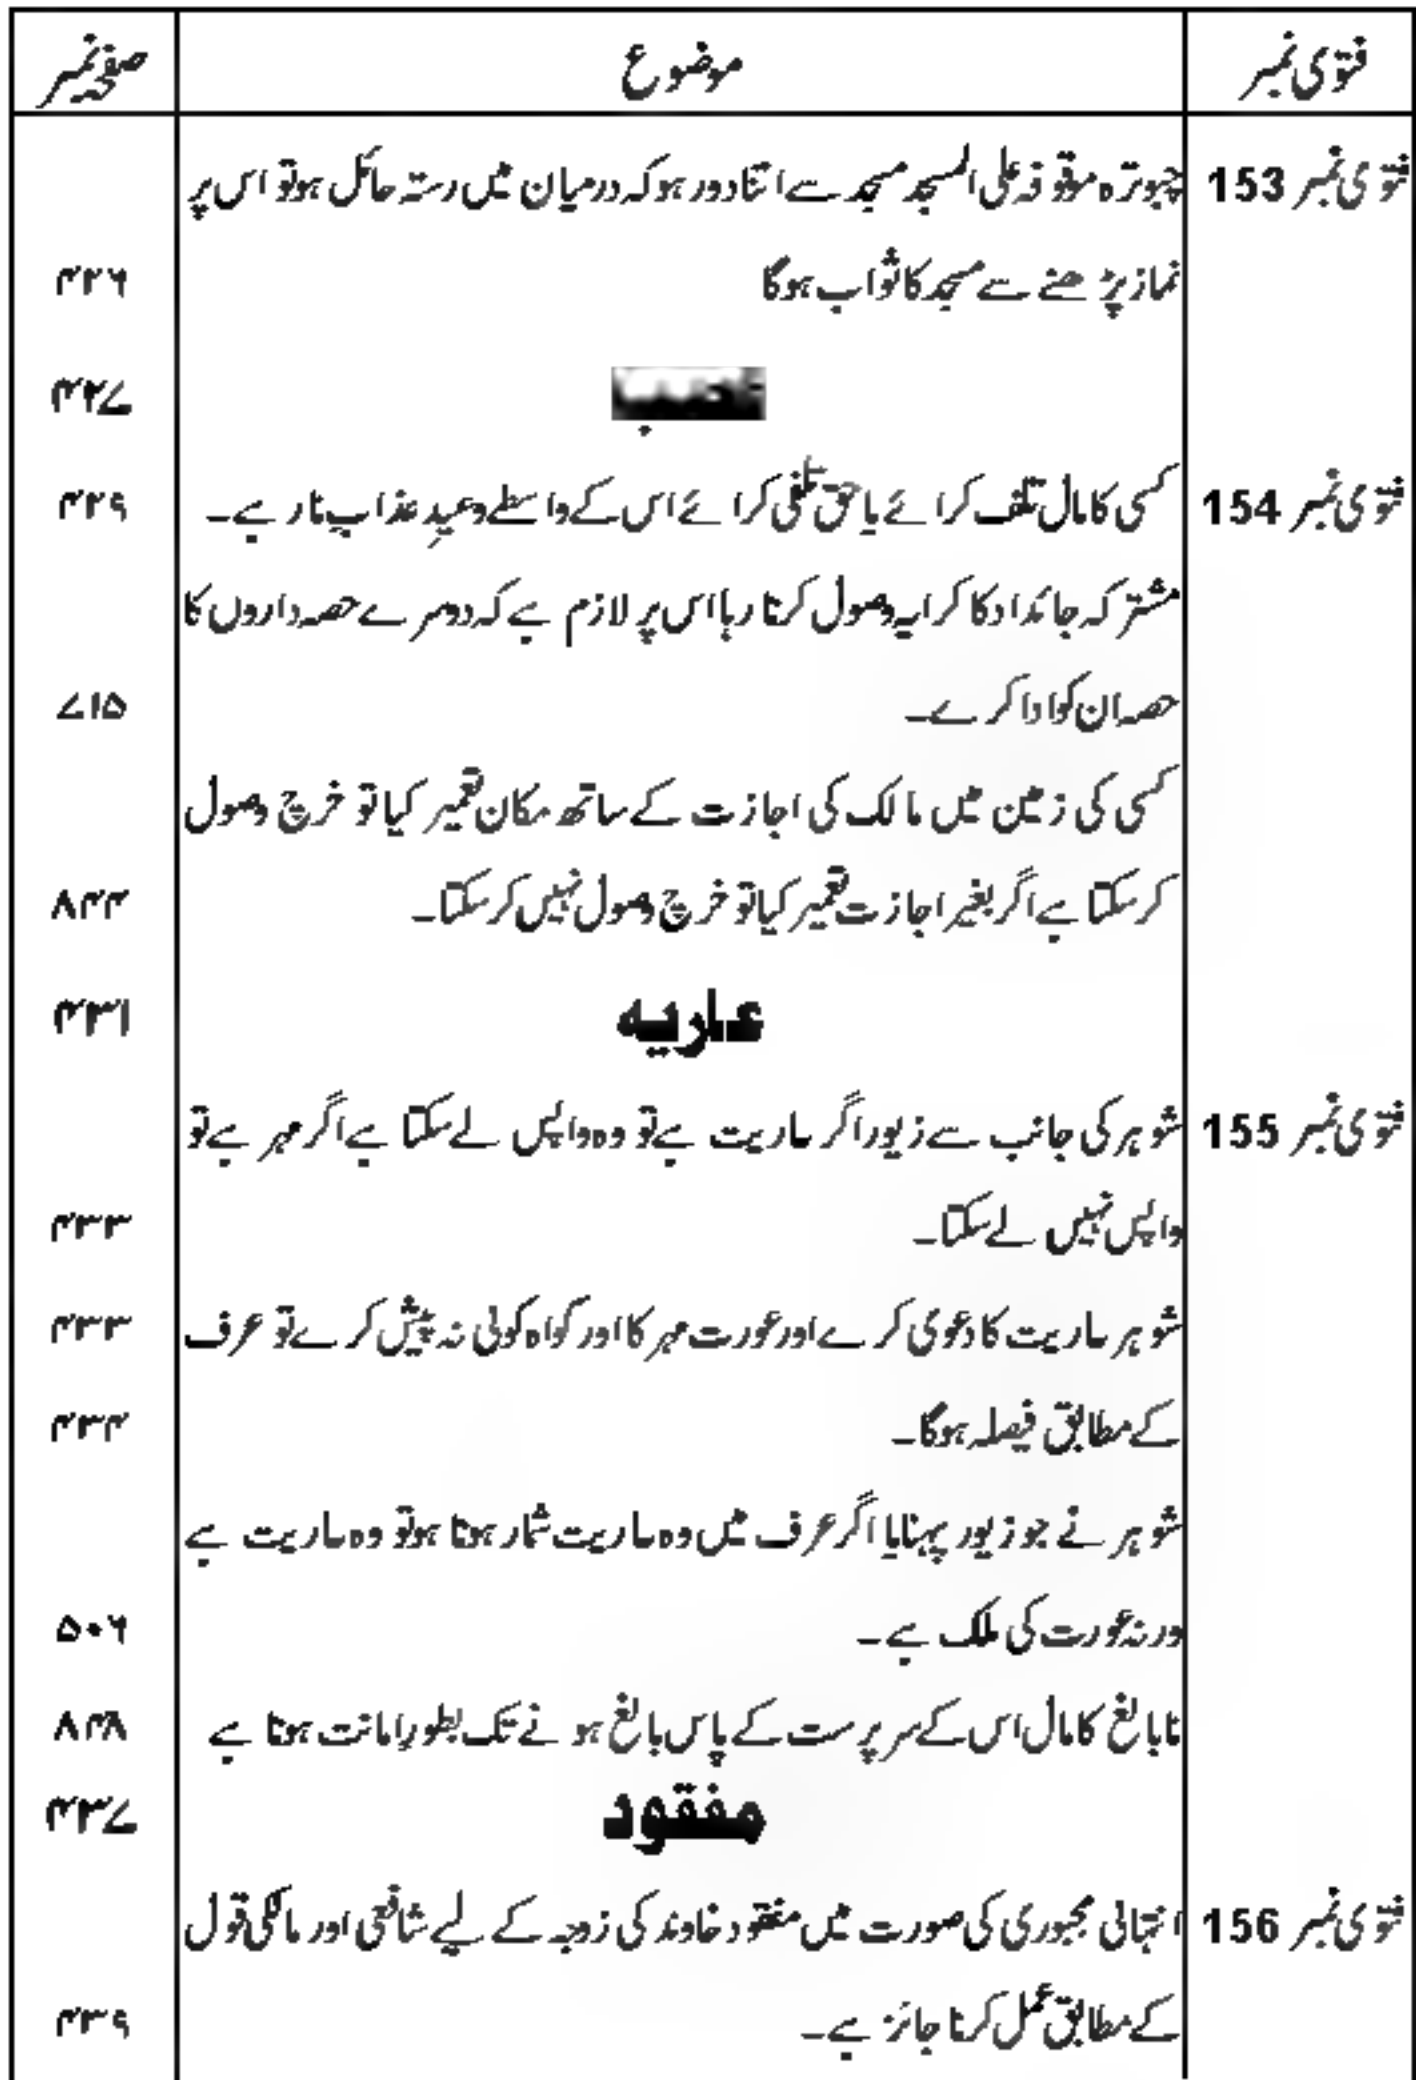 فتویٰ نمبر موضوع صفحہ نمبر
فتویٰ نمبر 153 چبوترہ موقوفہ علی المسجد مسجد سے اتنا دور ہو کہ درمیان میں رستہ حائل ہو تو اس پر
نماز پڑھنے سے مسجد کا ثواب ہوگا ۴۲۶
۴۲۷
فتویٰ نمبر 154 کسی کا مال تلف کرائے یا حق تلفی کرائے اس کے واسطے وعیدِ عذاب نار ہے۔ ۴۲۹
مشترکہ جائداد کا کرایہ وصول کرتا رہا اس پر لازم ہے کہ دوسرے حصہ داروں کا
حصہ ان کو ادا کرے۔ ۷۱۵
کسی کی زمین میں مالک کی اجازت کے ساتھ مکان تعمیر کیا تو خرچ وصول
کرسکتا ہے اگر بغیر اجازت تعمیر کیا تو خرچ وصول نہیں کرسکتا۔ ۸۴۴
عاریہ ۴۳۱
فتویٰ نمبر 155 شوہر کی جانب سے زیور اگر عاریت ہے تو وہ واپس لے سکتا ہے اگر مہر ہے تو
واپس نہیں لے سکتا۔ ۴۳۳
شوہر عاریت کا دعویٰ کرے اور عورت مہر کا اور گواہ کوئی نہ پیش کرے تو عرف ۴۳۳
کے مطابق فیصلہ ہوگا۔ ۴۳۴
شوہر نے جو زیور پہنایا اگر عرف میں وہ عاریت شمار ہوتا ہو تو وہ عاریت ہے
ورنہ عورت کی ملک ہے۔ ۵۰۶
نابالغ کا مال اس کے سرپرست کے پاس بالغ ہونے تک بطورِ امانت ہوتا ہے ۸۴۸
مفقود ۴۳۷
فتویٰ نمبر 156 انتہائی مجبوری کی صورت میں مفقود خاوند کی زوجہ کے لیے شافعی اور مالکی قول
کے مطابق عمل کرنا جائز ہے۔ ۴۳۹